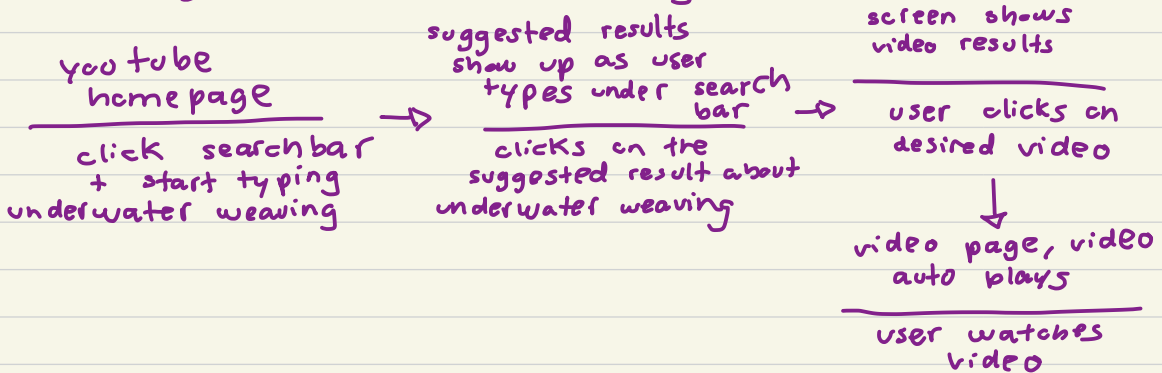 youtube
homepage
click searchbar
+ start typing
underwater weaving
suggested results
show up as user
types under search
bar
clicks on the
suggested result about
underwater weaving
screen shows
video results
user clicks on
desired video
video page, video
auto plays
user watches
video